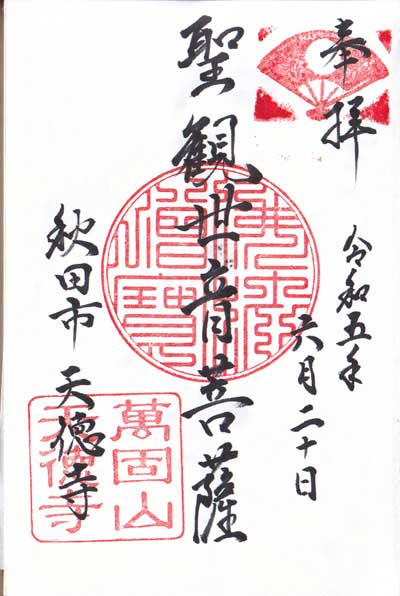 奉拝
令和五年
六月二十日
聖観世音菩薩
秋田市 天徳寺
萬固山
天德寺